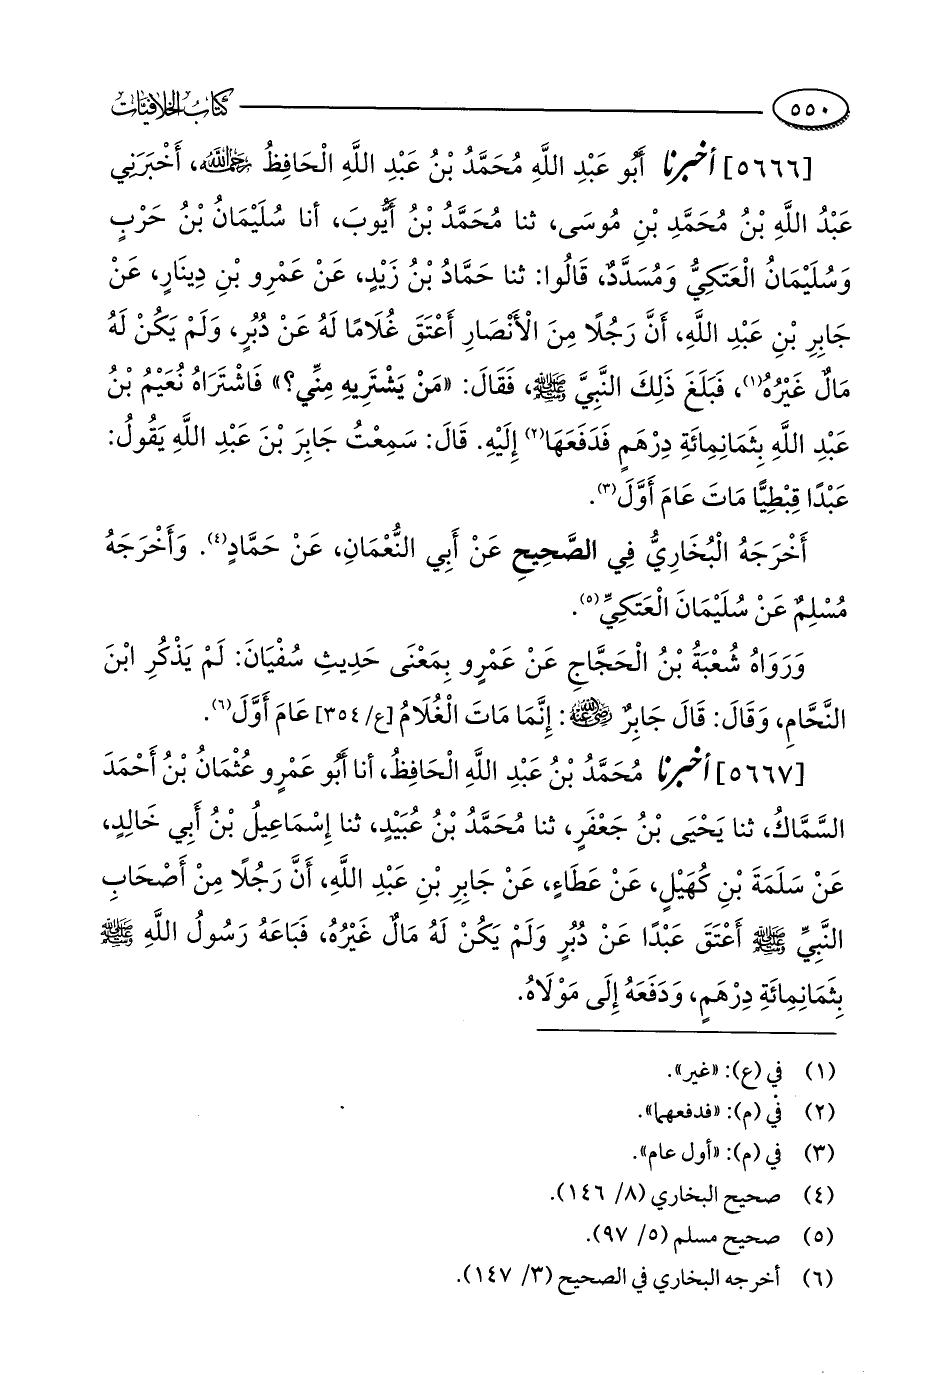 ٥٥٠
كتاب الخلافيات
[٥٦٦٦] أخبرنا أَبُو عَبْدِ اللَّهِ مُحَمَّدُ بْنُ عَبْدِ اللَّهِ الْحَافِظُ رَحِمَهُ اللَّهُ، أَخْبَرَنِي
عَبْدُ اللَّهِ بْنُ مُحَمَّدِ بْنِ مُوسَى، ثنا مُحَمَّدُ بْنُ أَيُّوبَ، أنا سُلَيْمَانُ بْنُ حَرْبٍ
وَسُلَيْمَانُ الْعَتَكِيُّ وَمُسَدَّدٌ، قَالُوا: ثنا حَمَّادُ بْنُ زَيْدٍ، عَنْ عَمْرِو بْنِ دِينَارٍ، عَنْ
جَابِرِ بْنِ عَبْدِ اللَّهِ، أَنَّ رَجُلًا مِنَ الْأَنْصَارِ أَعْتَقَ غُلَامًا لَهُ عَنْ دُبُرٍ، وَلَمْ يَكُنْ لَهُ
مَالٌ غَيْرُهُ(١)، فَبَلَغَ ذَلِكَ النَّبِيَّ ﷺ، فَقَالَ: «مَنْ يَشْتَرِيهِ مِنِّي؟» فَاشْتَرَاهُ نُعَيْمُ بْنُ
عَبْدِ اللَّهِ بِثَمَانِمِائَةِ دِرْهَمٍ فَدَفَعَهَا(٢) إِلَيْهِ. قَالَ: سَمِعْتُ جَابِرَ بْنَ عَبْدِ اللَّهِ يَقُولُ:
عَبْدًا قِبْطِيًّا مَاتَ عَامَ أَوَّلَ(٣).
أَخْرَجَهُ الْبُخَارِيُّ فِي الصَّحِيحِ عَنْ أَبِي النُّعْمَانِ، عَنْ حَمَّادٍ(٤). وَأَخْرَجَهُ
مُسْلِمٌ عَنْ سُلَيْمَانَ الْعَتَكِيِّ(٥).
وَرَوَاهُ شُعْبَةُ بْنُ الْحَجَّاجِ عَنْ عَمْرٍو بِمَعْنَى حَدِيثِ سُفْيَانَ: لَمْ يَذْكُرِ ابْنَ
النَّحَّامِ، وَقَالَ: قَالَ جَابِرٌ رَضِيَ اللَّهُ عَنْهُ: إِنَّمَا مَاتَ الْغُلَامُ [ع/ ٣٥٤] عَامَ أَوَّلَ(٦).
[٥٦٦٧] أخبرنا مُحَمَّدُ بْنُ عَبْدِ اللَّهِ الْحَافِظُ، أنا أَبُو عَمْرٍو عُثْمَانُ بْنُ أَحْمَدَ
السَّمَّاكُ، ثنا يَحْيَى بْنُ جَعْفَرٍ، ثنا مُحَمَّدُ بْنُ عُبَيْدٍ، ثنا إِسْمَاعِيلُ بْنُ أَبِي خَالِدٍ،
عَنْ سَلَمَةَ بْنِ كُهَيْلٍ، عَنْ عَطَاءٍ، عَنْ جَابِرِ بْنِ عَبْدِ اللَّهِ، أَنَّ رَجُلًا مِنْ أَصْحَابِ
النَّبِيِّ ﷺ أَعْتَقَ عَبْدًا عَنْ دُبُرٍ وَلَمْ يَكُنْ لَهُ مَالٌ غَيْرُهُ، فَبَاعَهُ رَسُولُ اللَّهِ ﷺ
بِثَمَانِمِائَةِ دِرْهَمٍ، وَدَفَعَهُ إِلَى مَوْلَاهُ.
(١) في (ع): «غير».
(٢) في (م): «فدفعهما».
(٣) في (م): «أول عام».
(٤) صحيح البخاري (٨/ ١٤٦).
(٥) صحيح مسلم (٥/ ٩٧).
(٦) أخرجه البخاري في الصحيح (٣/ ١٤٧).